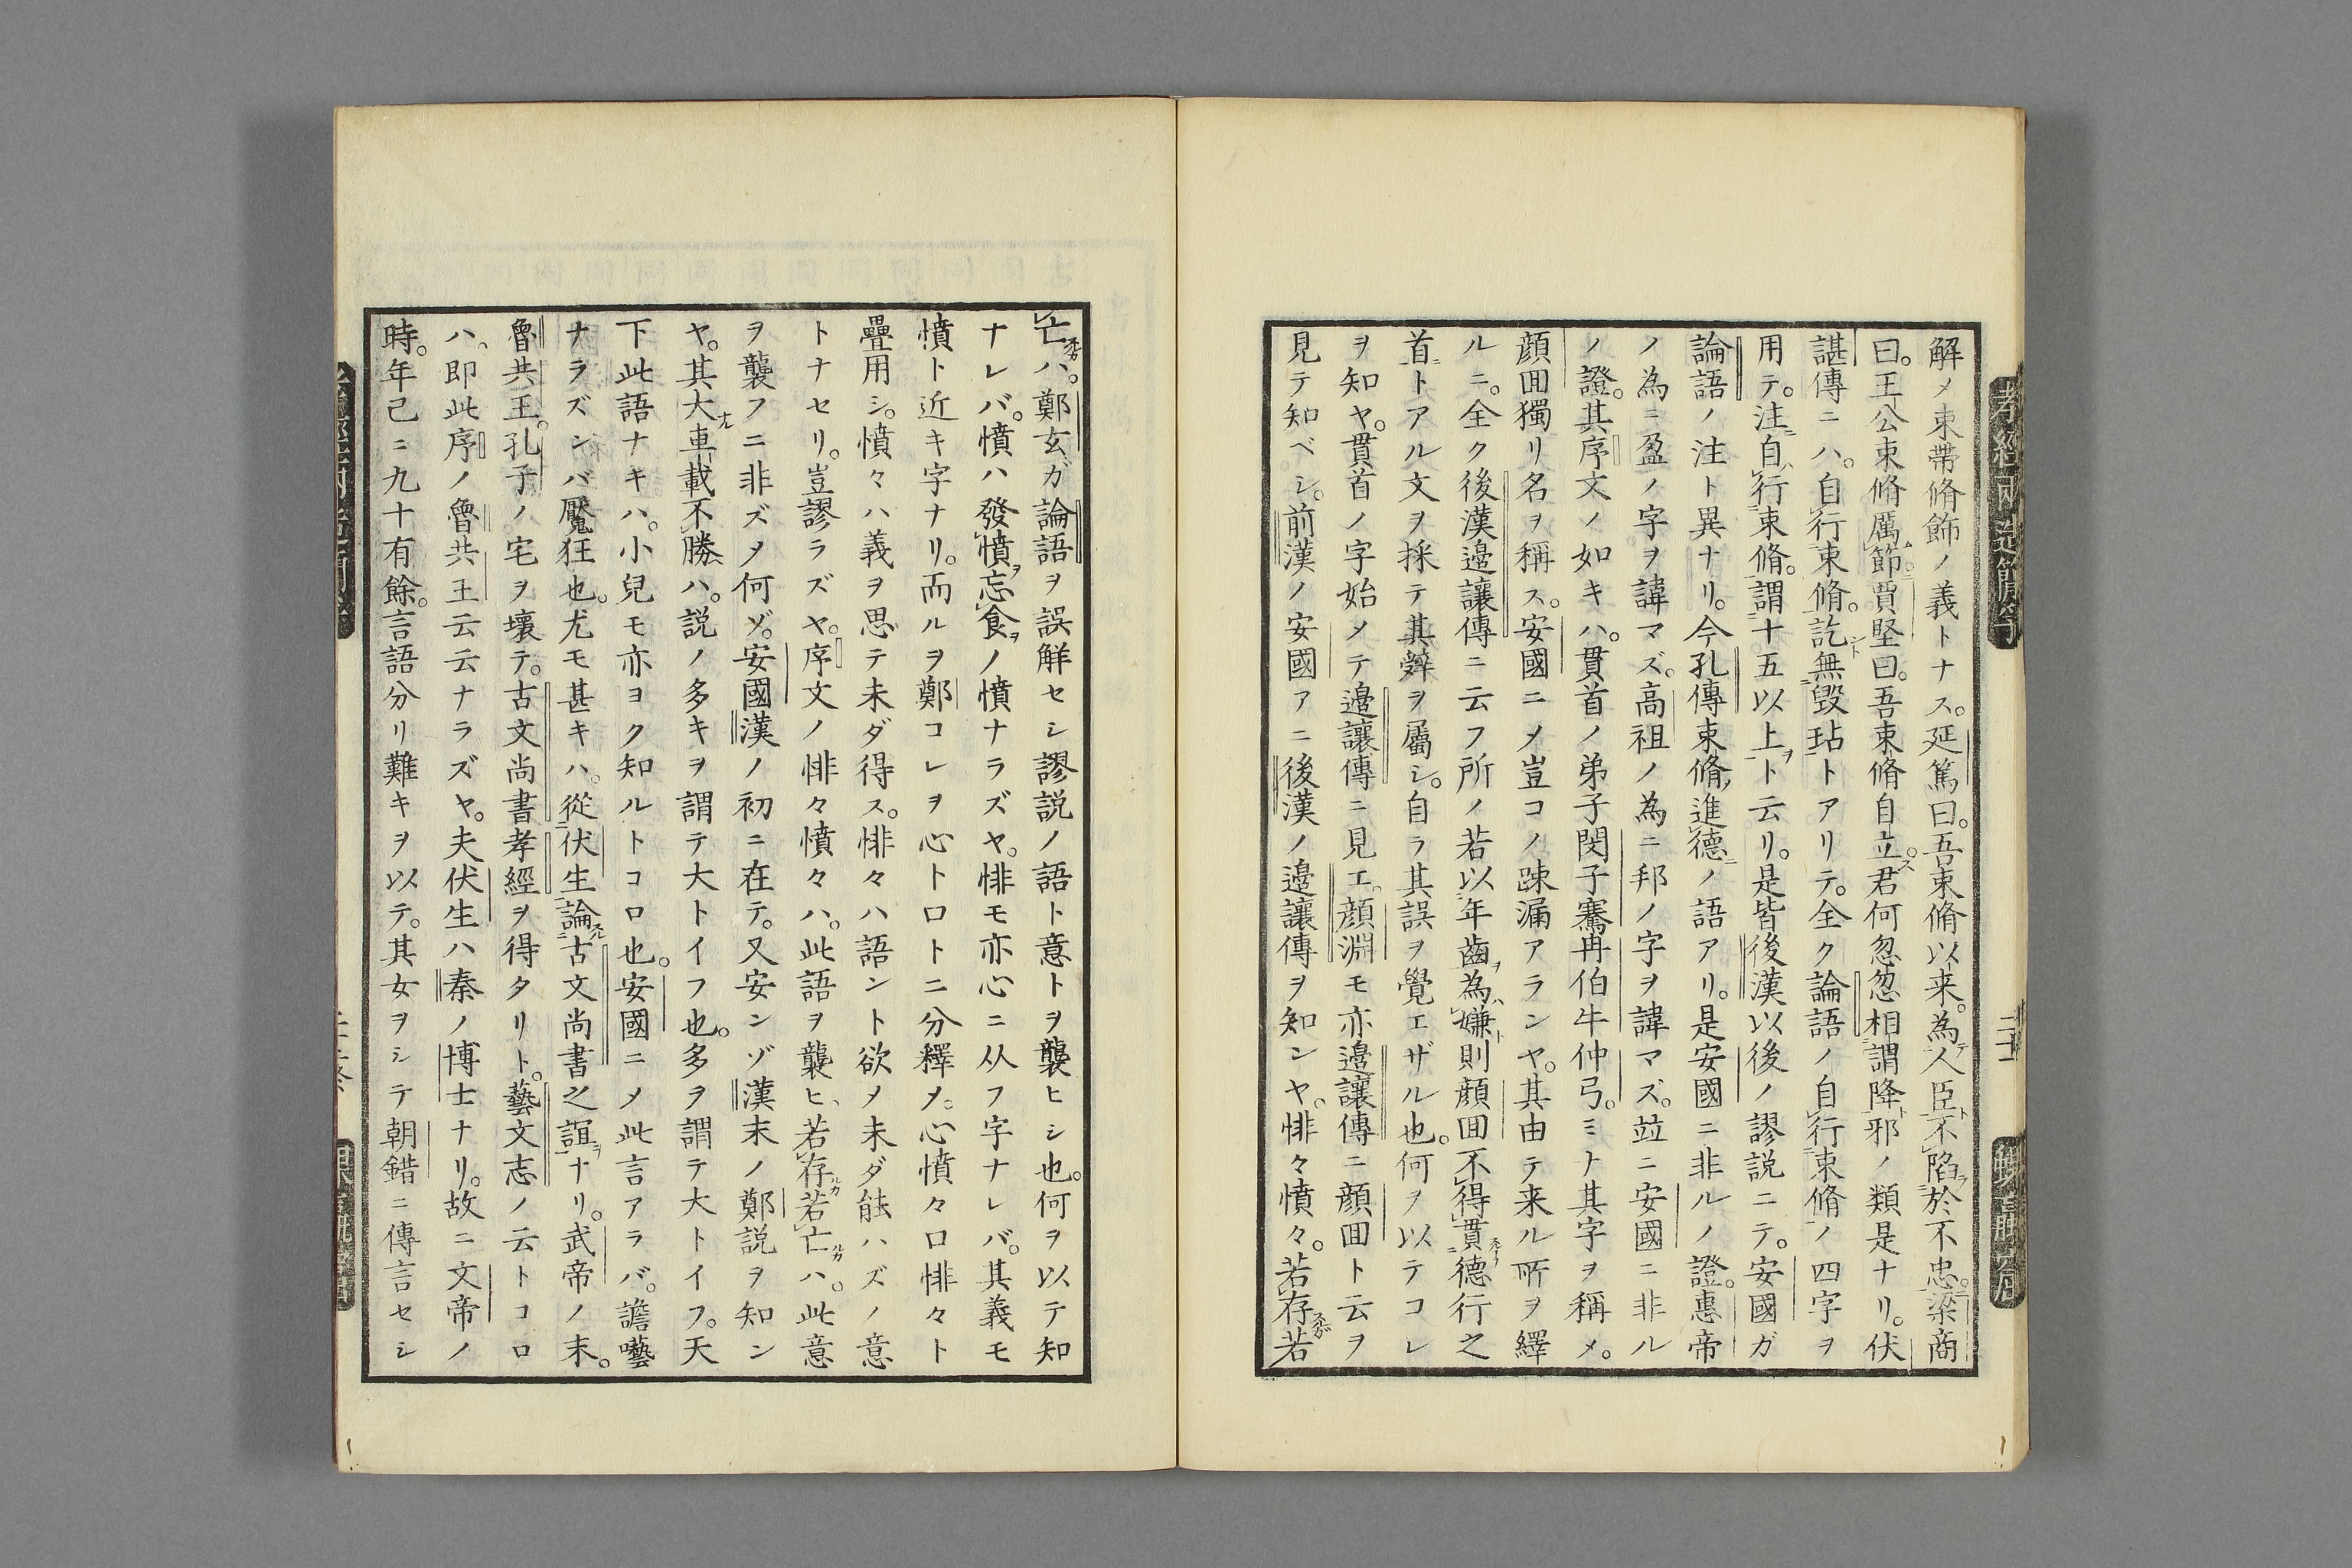 解メ束帶脩飾ノ義トナス。延篤曰。吾束脩以来。為人臣不陷於不忠。梁商
曰。王公束脩厲節。賈堅曰。吾束脩自立。君何忽忽相謂降邪ノ類是ナリ。伏
諶傳ニハ。自行束脩。訖無毀玷トアリテ。全ク論語ノ自行束脩ノ四字ヲ
用テ。注自行束脩。謂十五以上ト云リ。是皆後漢以後ノ謬説ニテ。安國ガ
論語ノ注ト異ナリ。今孔傳束脩進德ノ語アリ。是安國ニ非ルノ證。惠帝
ノ為ニ盈ノ字ヲ諱マズ。高祖ノ為ニ邦ノ字ヲ諱マズ。竝ニ安國ニ非ル
ノ證。其序文ノ如キハ。貫首ノ弟子閔子騫冉伯牛仲弓。ミナ其字ヲ稱メ。
顔囬獨リ名ヲ稱ス。安國ニメ豈コノ踈漏アランヤ。其由テ来ル所ヲ繹
ルニ。全ク後漢邊讓傳ニ云フ所ノ若以年齒為嫌則顔囬不得貫德行之
首トアル文ヲ採テ其辭ヲ屬シ。自ラ其誤ヲ覺エザル也。何ヲ以テコレ
ヲ知ヤ。貫首ノ字始メテ邉讓傳ニ見エ。顔淵モ亦邉讓傳ニ顔囬ト云ヲ
見テ知ベシ。前漢ノ安國アニ後漢ノ邉讓傳ヲ知ンヤ。悱々憤々。若存若
亡ハ。鄭玄ガ論語ヲ誤解セシ謬説ノ語ト意トヲ襲ヒシ也。何ヲ以テ知
ナレバ。憤ハ發憤忘食ノ憤ナラズヤ。悱モ亦心ニ从フ字ナレバ。其義モ
憤ト近キ字ナリ。而ルヲ鄭コレヲ心ト口トニ分釋メ。心憤々口悱々ト
疊用シ。憤々ハ義ヲ思テ未ダ得ス。悱々ハ語ント欲メ未ダ能ハズノ意
トナセリ。豈謬ラズヤ。序文ノ悱々憤々ハ。此語ヲ襲ヒ、若存若亡ハ。此意
ヲ襲フニ非ズメ何ゾ。安國漢ノ初ニ在テ。又安ンゾ漢末ノ鄭説ヲ知ン
ヤ。其大車載不勝ハ。説ノ多キヲ謂テ大トイフ也。多ヲ謂テ大トイフ。天
下此語ナキハ。小兒モ亦ヨク知ルトコロ也。安國ニメ此言アラバ。譫囈
ナラズンバ魘狂也。尤モ甚キハ。從伏生論古文尚書之誼ナリ。武帝ノ末。
魯共王。孔子ノ宅ヲ壞テ。古文尚書孝經ヲ得タリト。藝文志ノ云トコロ
ハ、即此序ノ魯共王云云ナラズヤ。夫伏生ハ秦ノ博士ナリ。故ニ文帝ノ
時。年已ニ九十有餘。言語分リ難キヲ以テ。其女ヲシテ朝錯ニ傳言セシ